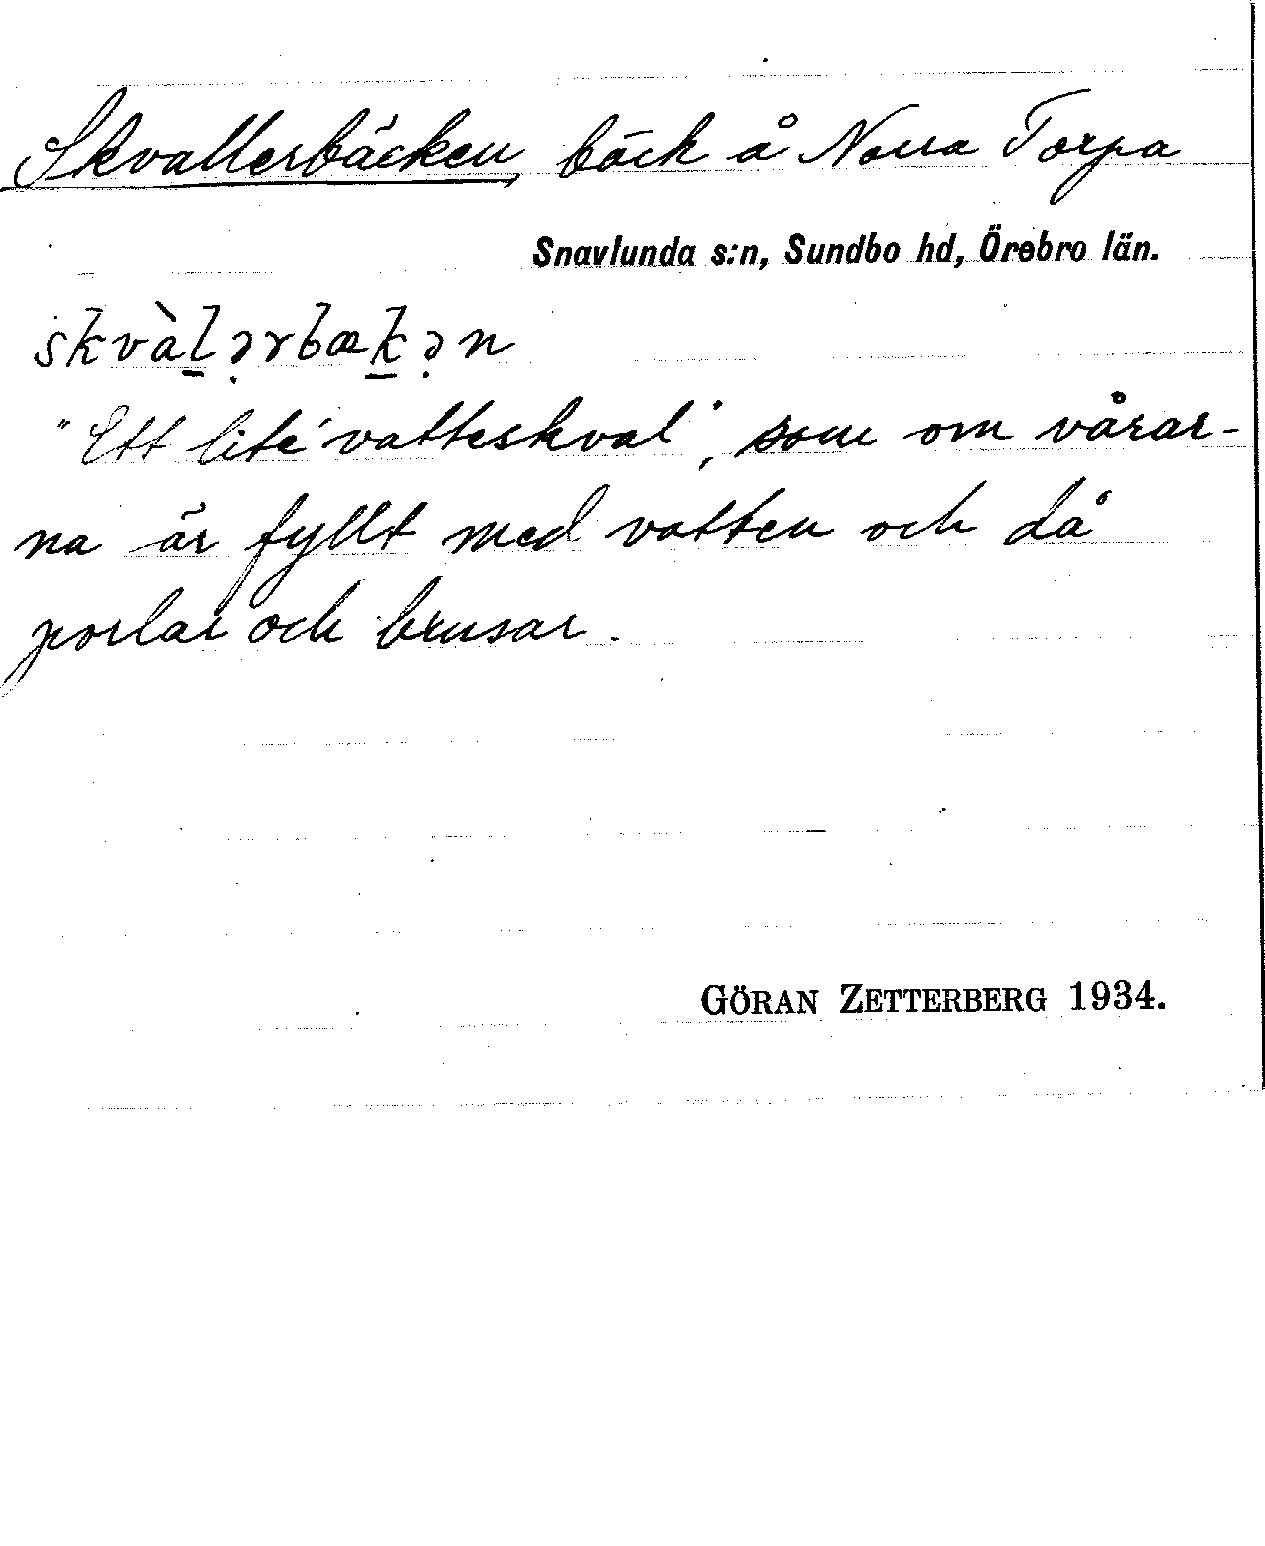 Skvallerbäcken, bäck å Norra Torpa
Snavlunda s:n, Sundbo hd, Örebro län.
skvàl̲ə̣rbæk̲ə̣n
"Ett lite' vatteskval", som om vårar-
na är fyllt med vatten och då
porlar och brusar.
GÖRAN ZETTERBERG 1934.